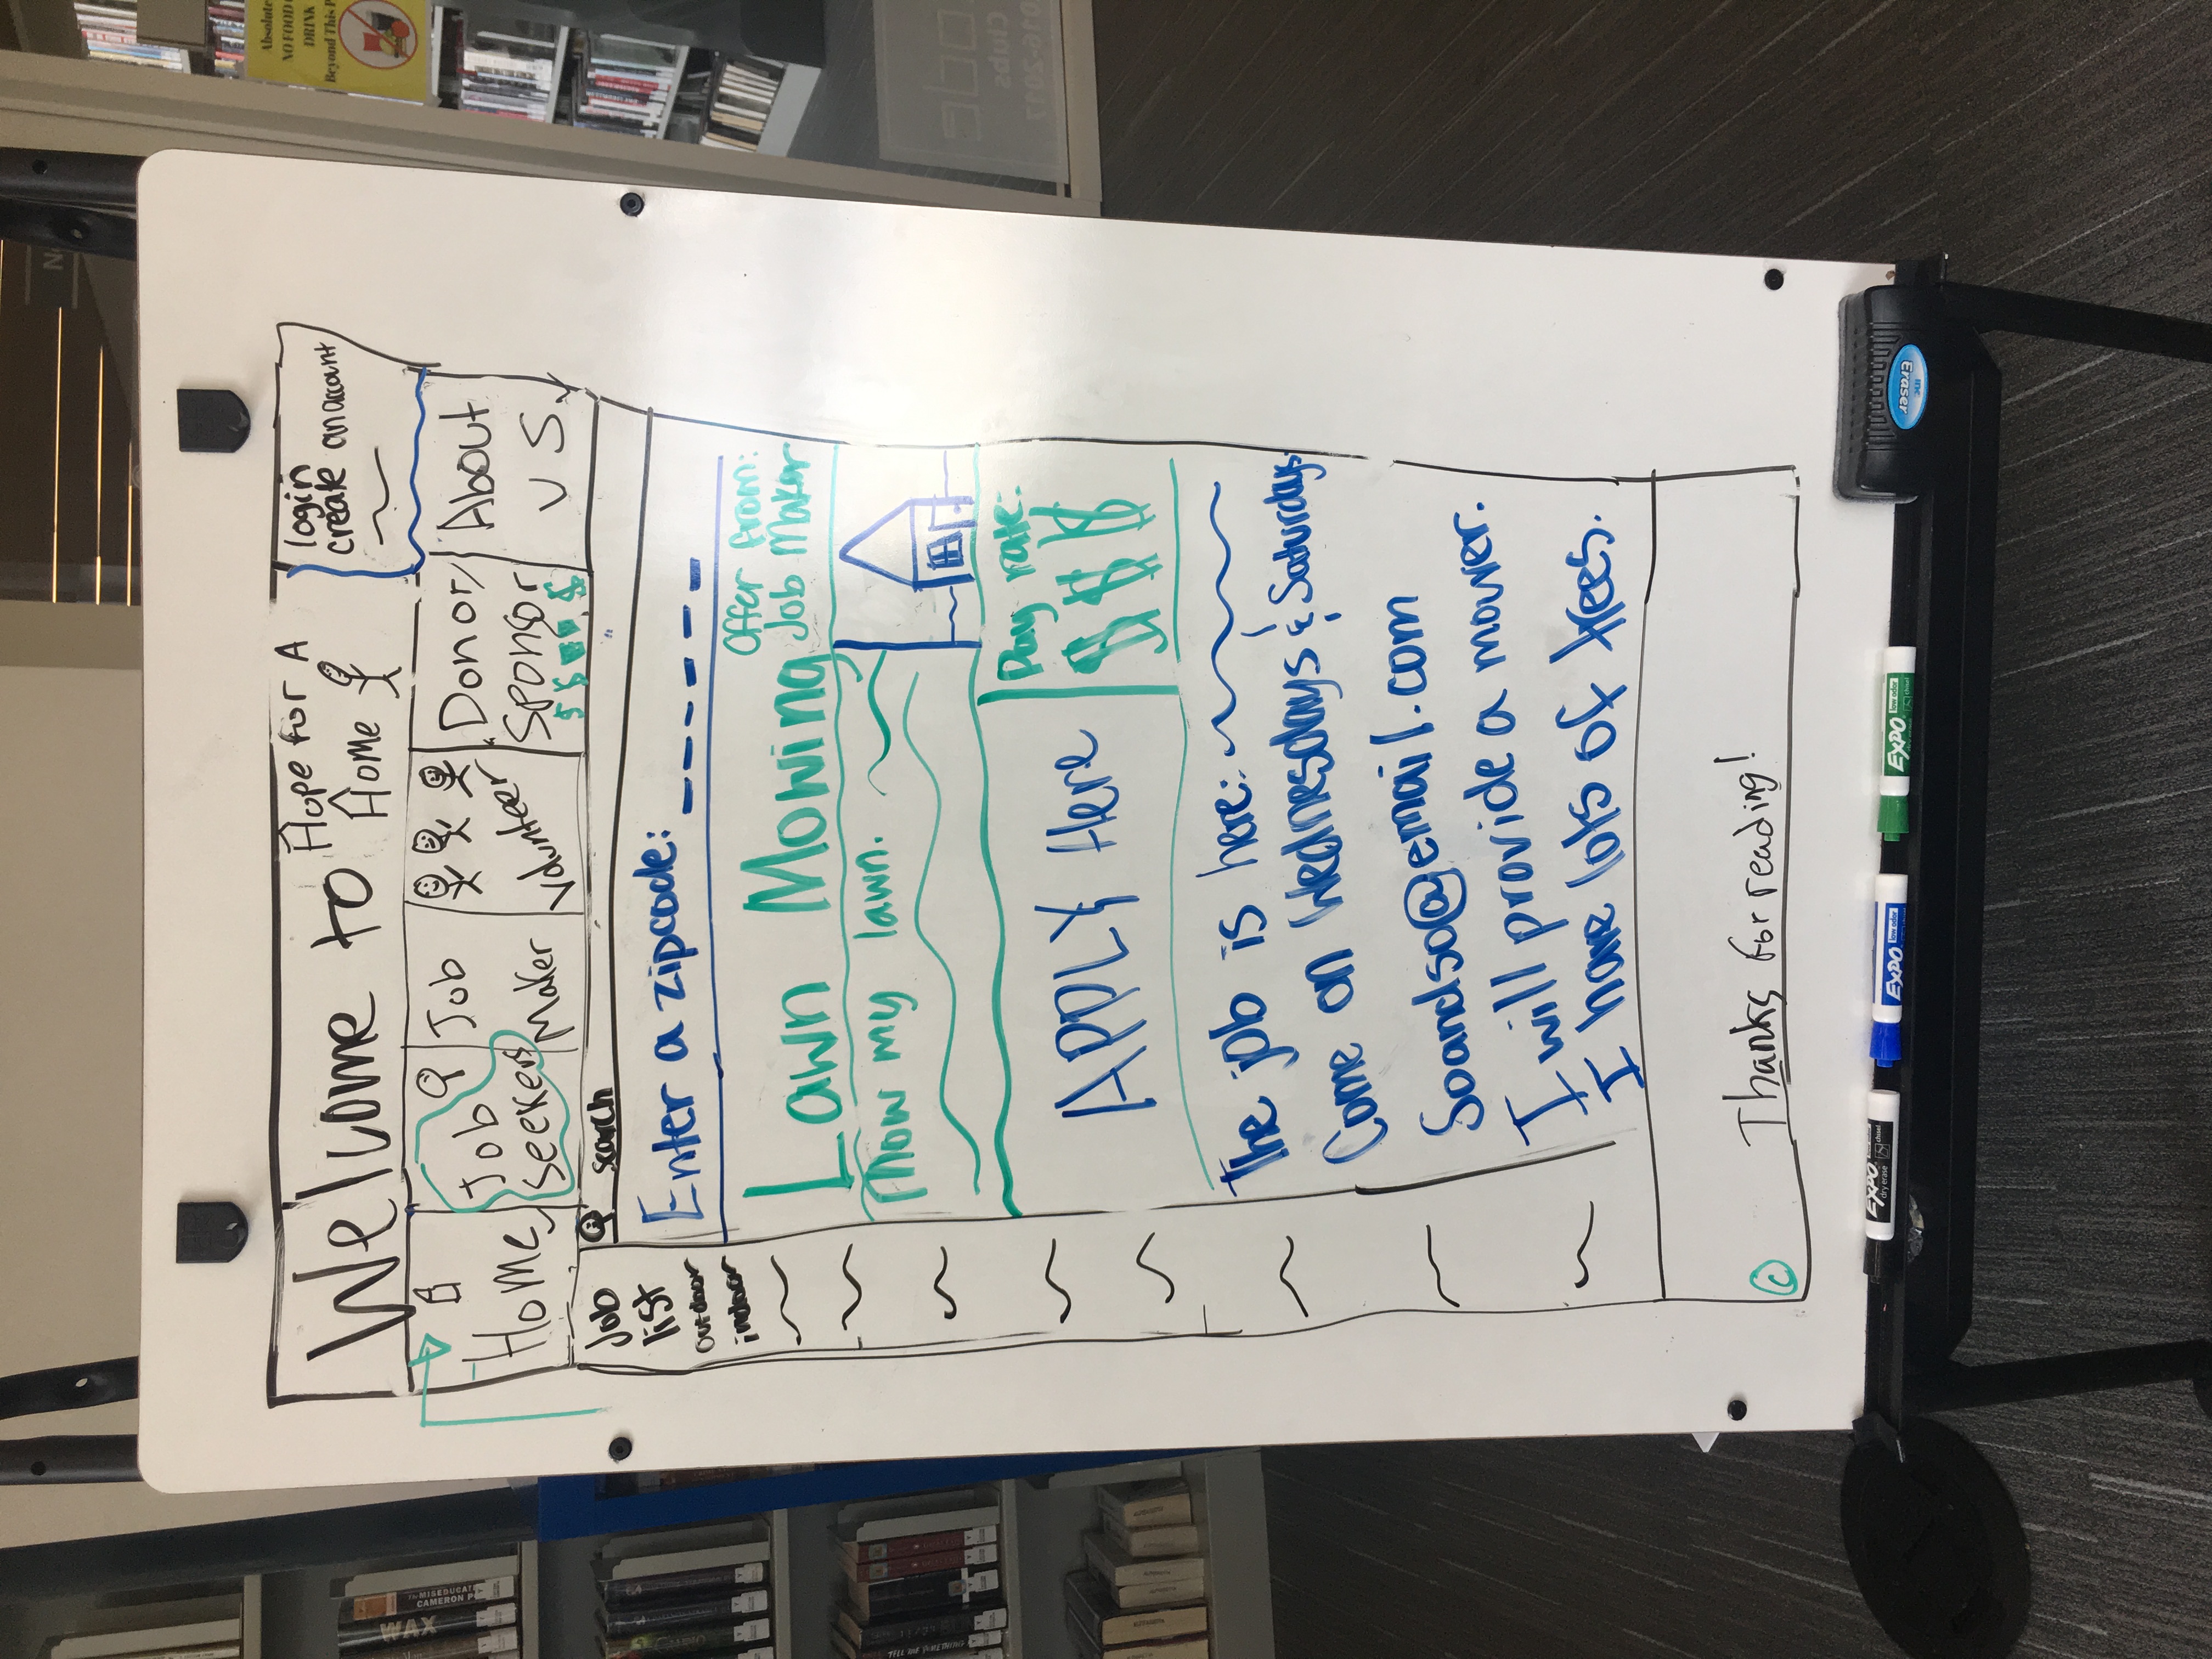 Welcome to Hope for A Home
login
create an account
Home
Job Seekers
Job Maker
Volunteer
Donor/
Sponsor
$ $ $
About
US
Job
list
outdoor
indoor
search
Enter a zipcode: _ _ _ _ _ _
Lawn Mowing
Offer from:
Job Maker
Mow my lawn.
APPLY Here
Pay rate:
$ $ $
The job is here:
Come on Wednesdays & Saturdays.
Soandso@email.com
I will provide a mower.
I have lots of trees.
© Thanks for reading!
EXPO
dry erase
chisel
EXPO
low odor
EXPO
low odor
chisel
Eraser
Absolute
NO FOOD
DRINK
Beyond This P
Clubs
2016-2017
WAX